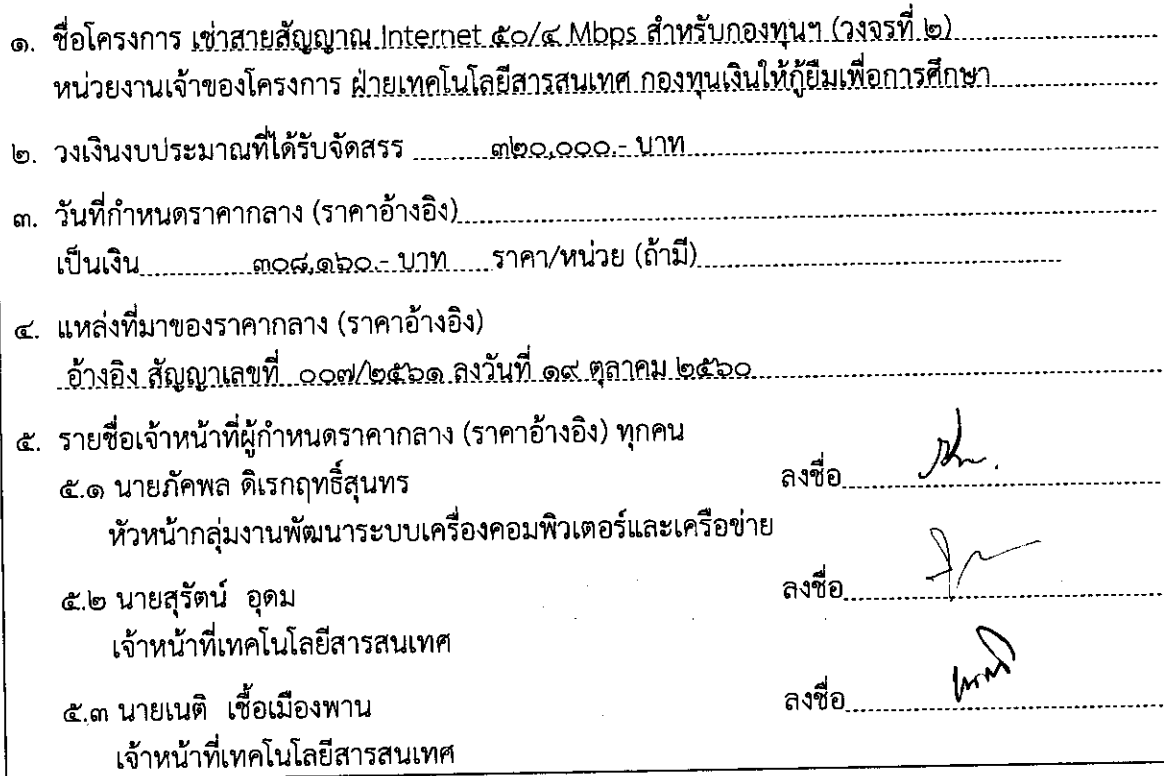 ๑. ชื่อโครงการ เช่าสายสัญญาณ Internet ๕๐/๔ Mbps สำหรับกองทุนฯ (วงจรที่ ๒)
หน่วยงานเจ้าของโครงการ ฝ่ายเทคโนโลยีสารสนเทศ กองทุนเงินให้กู้ยืมเพื่อการศึกษา
๒. วงเงินงบประมาณที่ได้รับจัดสรร ๓๒๐,๐๐๐.- บาท
๓. วันที่กำหนดราคากลาง (ราคาอ้างอิง)
เป็นเงิน ๓๐๘,๑๖๐.- บาท ราคา/หน่วย (ถ้ามี)
๔. แหล่งที่มาของราคากลาง (ราคาอ้างอิง)
อ้างอิง สัญญาเลขที่ ๐๐๗/๒๕๖๑ ลงวันที่ ๑๙ ตุลาคม ๒๕๖๐
๕. รายชื่อเจ้าหน้าที่ผู้กำหนดราคากลาง (ราคาอ้างอิง) ทุกคน
๕.๑ นายภัคพล ดิเรกฤทธิ์สุนทร ลงชื่อ
หัวหน้ากลุ่มงานพัฒนาระบบเครื่องคอมพิวเตอร์และเครือข่าย
๕.๒ นายสุรัตน์ อุดม ลงชื่อ
เจ้าหน้าที่เทคโนโลยีสารสนเทศ
๕.๓ นายเนติ เชื้อเมืองพาน ลงชื่อ
เจ้าหน้าที่เทคโนโลยีสารสนเทศ